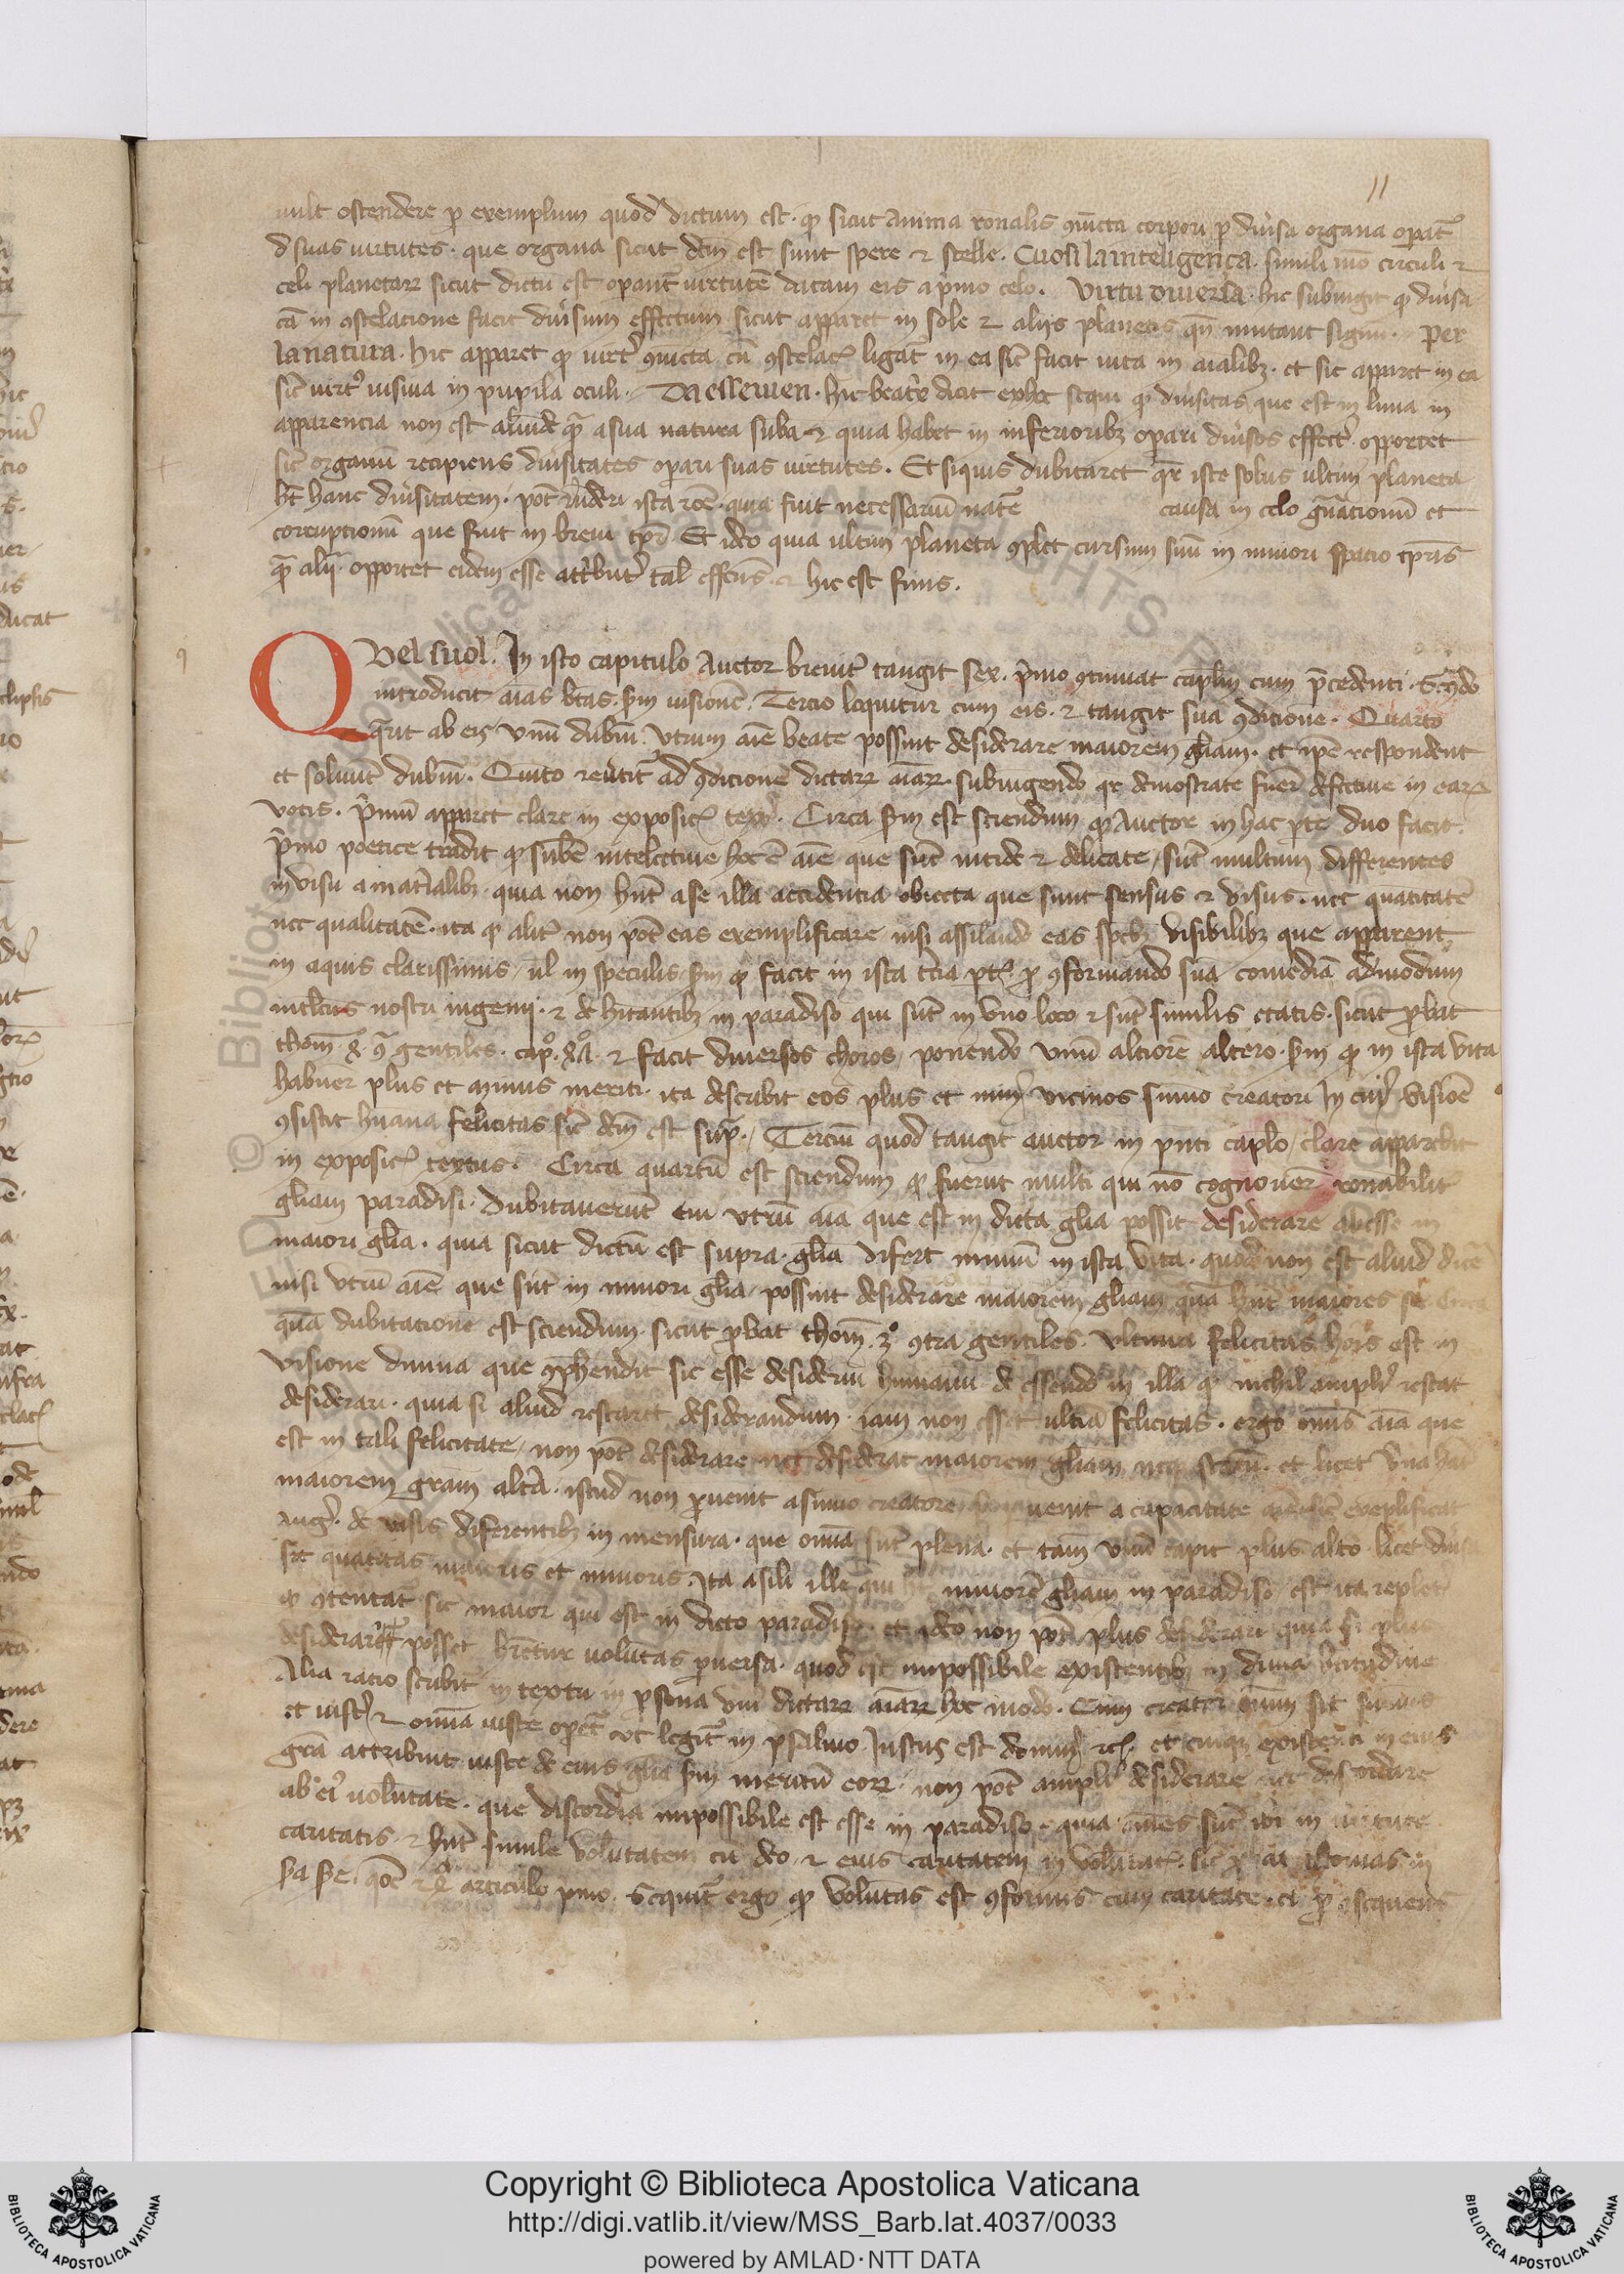 11
uult ostendere ꝑ exemplum quod dictum est · ꝙ sicut anima rōnalis ꝯiūcta corpori ꝑ diu̾sa organa opat᷑
d suas uirtutes · que organa sicut dc̄m est sunt spere ⁊ stelle · Cuosi la inteligença · simili mō circuli ⁊
celi planetaꝝ sicut dictū est opant᷑ uirtutē datam eis a pͥmo celo · Virtu diuersa · hic subiungit ꝙ diu̾sa
cā in ꝯstelacione facit diu̾sum effectum sicut apparet in sole ⁊ alijs planetis qn̄ mutant signū · Per
la natura · hic apparet ꝙ uirtꝰ ꝯiūcta cū ꝯstelacꝭ ligat᷑ in ea sic̄ facit uita in aialibꝫ · et sic apparet in ea
sic̄ uirtꝰ uisiua in pupila oculi · Da esse uien · hic beat̾x dicit ex hoc sequi ꝙ diu̾sitas que est in luna in
apparencia non est aliūde qᷓ a sua natura ⁊ quia habet in inferioribꝫ opari diu̾sos effectꝰ · opportet
sic̄ organū recipiens diu̾sitates opari suas uirtutes · Et siquis dubitaret qͬe iste solus ultimꝰ planeta
hꝫ hanc diu̾sitatem · pōt rn̄deri ista rōe · quia fuit necessariū causa in celo gn̄acionū et
corrupcionū que fiūt in breui tpr̄ · Et ideo quia ultimꝰ planeta ꝯplet cursum suū in minori spacio tpr̄is
qᷓ alij · opportet eidem esse attͥbutꝰ tal effcūs · ⁊ hic est finis ·
9
QVel suol · In isto capitulo Auctor breuit᷑ tangit sex · pͥmo ꝯtinuat caplm̄ cum pͤcedenti · Scd̄o
introducit aīas btās · ẜm uisionē · Tercio loquitur cum eis · ⁊ tangit suā ꝯdicionē · Quarto
qͣrit ab eis vnū dubiū · vtrum aīe beate possint desiderare maiorem gl̄iam · et ip̄e respondent
et soluūt dubiū · Quīto reu̾tit᷑ ad ꝯdicionē dictaꝝ aīaꝝ · subiungendo qͬe demostrate fuer̄t defectiue in eaꝝ
votis · pͥmū apparet clare in exposicꝭ textꝰ · Circa ẜm est sciendum ꝙ Auctor in hac pte duo facit ·
pͥmo poetice tradit ꝙ sub̄e intelectiue hoc ē aīe que sūt nitide ⁊ delicate / sūt multum differentes
in visu a mat̾ialibꝫ · quia non hn̄t a se illa accidencia obiecta que sunt sensus ⁊ visus · nec quātitatē
nec qualitatē · ita ꝙ alit᷑ non pōt eas exemplificare nisi assilando eas spēbꝫ visibilibꝫ que apparent
in aquis clarissimis / ul̄ in speculis / ẜm ꝙ facit in ista tc̄ia ptꝭ ꝑ ꝯformando suā comediā ad modum
intlectꝰ nostri ingenij · ⁊ de hītantibꝫ in paradiso qui sūt in vno loco ⁊ sūt similis etatis · sicut ꝓbat
thom̄ · ꝯᷓ gentiles · capͦ · ⁊ facit diuersos choros / ponendo vnū altiorē altero · ẜm ꝙ in ista vita
habuer̄ plus et minus meriti · ita describit eos plus et minꝰ vicinos sūmo creatori In cuiꝰ visiōe
ꝯsistit huāna felicitas sic̄ dc̄m est supͣ · / Terciū quod tangit auctor in pn̄ti caplo / clare apparebit
in exposicꝭ textus · Circa quartū est sciendum ꝙ fuerūt multi qui nō cognouer̄t rōnabilit᷑
gl̄iam paradisi · Dubitauerūt em̄ vtrū aīa que est in dicta gl̄ia possit desiderare abesse in
maiori gl̄ia · quia sicut dictū est supra · gl̄ia difert nimiū in ista vita · quod non est aliud dic̄e
nisi vtrū aīe que sūt in minori gl̄ia / possint desiderare maiorem gl̄iam quā hn̄t maiores se · Circa
quā dubitacionē est sciendum sicut ꝓbat thom̄ · 3ͦ · ꝯtra gentiles · vltima felicitas hōis est in
visione diuina que ꝯp̄hendit sic esse desideriū humanū de essendo in illa ꝙ nichil ampliꝰ restat
desiderari · quia si aliud restaret desiderandum · iam non esset ultīa felicitas · ergo om̄is aīa que
est in tali felicitate / non pōt desiderare nec desiderat maiorem gl̄iam nec statū · et licet vna hat
maiorem grām alt̾a · istud non ꝓuenit a sūmo creatore uenit a capacitate exēplificat
augꝰ · de uasis diferentibꝫ in mensura · que omīa sūt plena · et tam̄ vnū capit plus alt̾o licet diu̾sa
sit quātitas maioris et minoris · Ita a sili ille qui hꝫ minorē gl̄iam in paradiso / est ita repletꝰ
⁊ ꝯtentat᷑ sic̄ maior qui est in dicto paradiso · et ideo non pōt plus desiderari quia si plus
desiderari posset hr̄etur uolūtas ꝑuersa · quod est impossibile existentibꝫ in diuīa btitudine
Alia racio scribit᷑ in textu in ꝑsona vniꝰ dictaꝝ aīaꝝ hoc modo · Cum creator om̄m sit sūmus
et iustꝰ ⁊ omīa iuste opet᷑ vt legit᷑ in psalmo Iustus est dominꝰ ⁊cꝭ · et cuiqꝫ existenti in eius
grā attribuit iuste de eius gl̄ia ẜm meritū eoꝝ · non pōt ampliꝰ desiderare nec discordare
ab eiꝰ uolūtate · que discordia impossibile est esse in paradiso · quia om̄es sūt ibi in uirtute
caritatis · ⁊ hn̄t simile volūtatem cū deo · ⁊ eius caritatem in volūtatꝭ · sic ꝓbat thomas in
articulo pͥmo · Sequit᷑ ergo ꝙ volūtas est ꝯformis cum caritate · et ꝑ ꝯsequens
Copyright © Biblioteca Apostolica Vaticana
http://digi.vatlib.it/view/MSS_Barb.lat.4037/0033
powered by AMLAD·NTT DATA
BIBLIOTECA APOSTOLICA VATICANA
BIBLIOTECA APOSTOLICA VATICANA